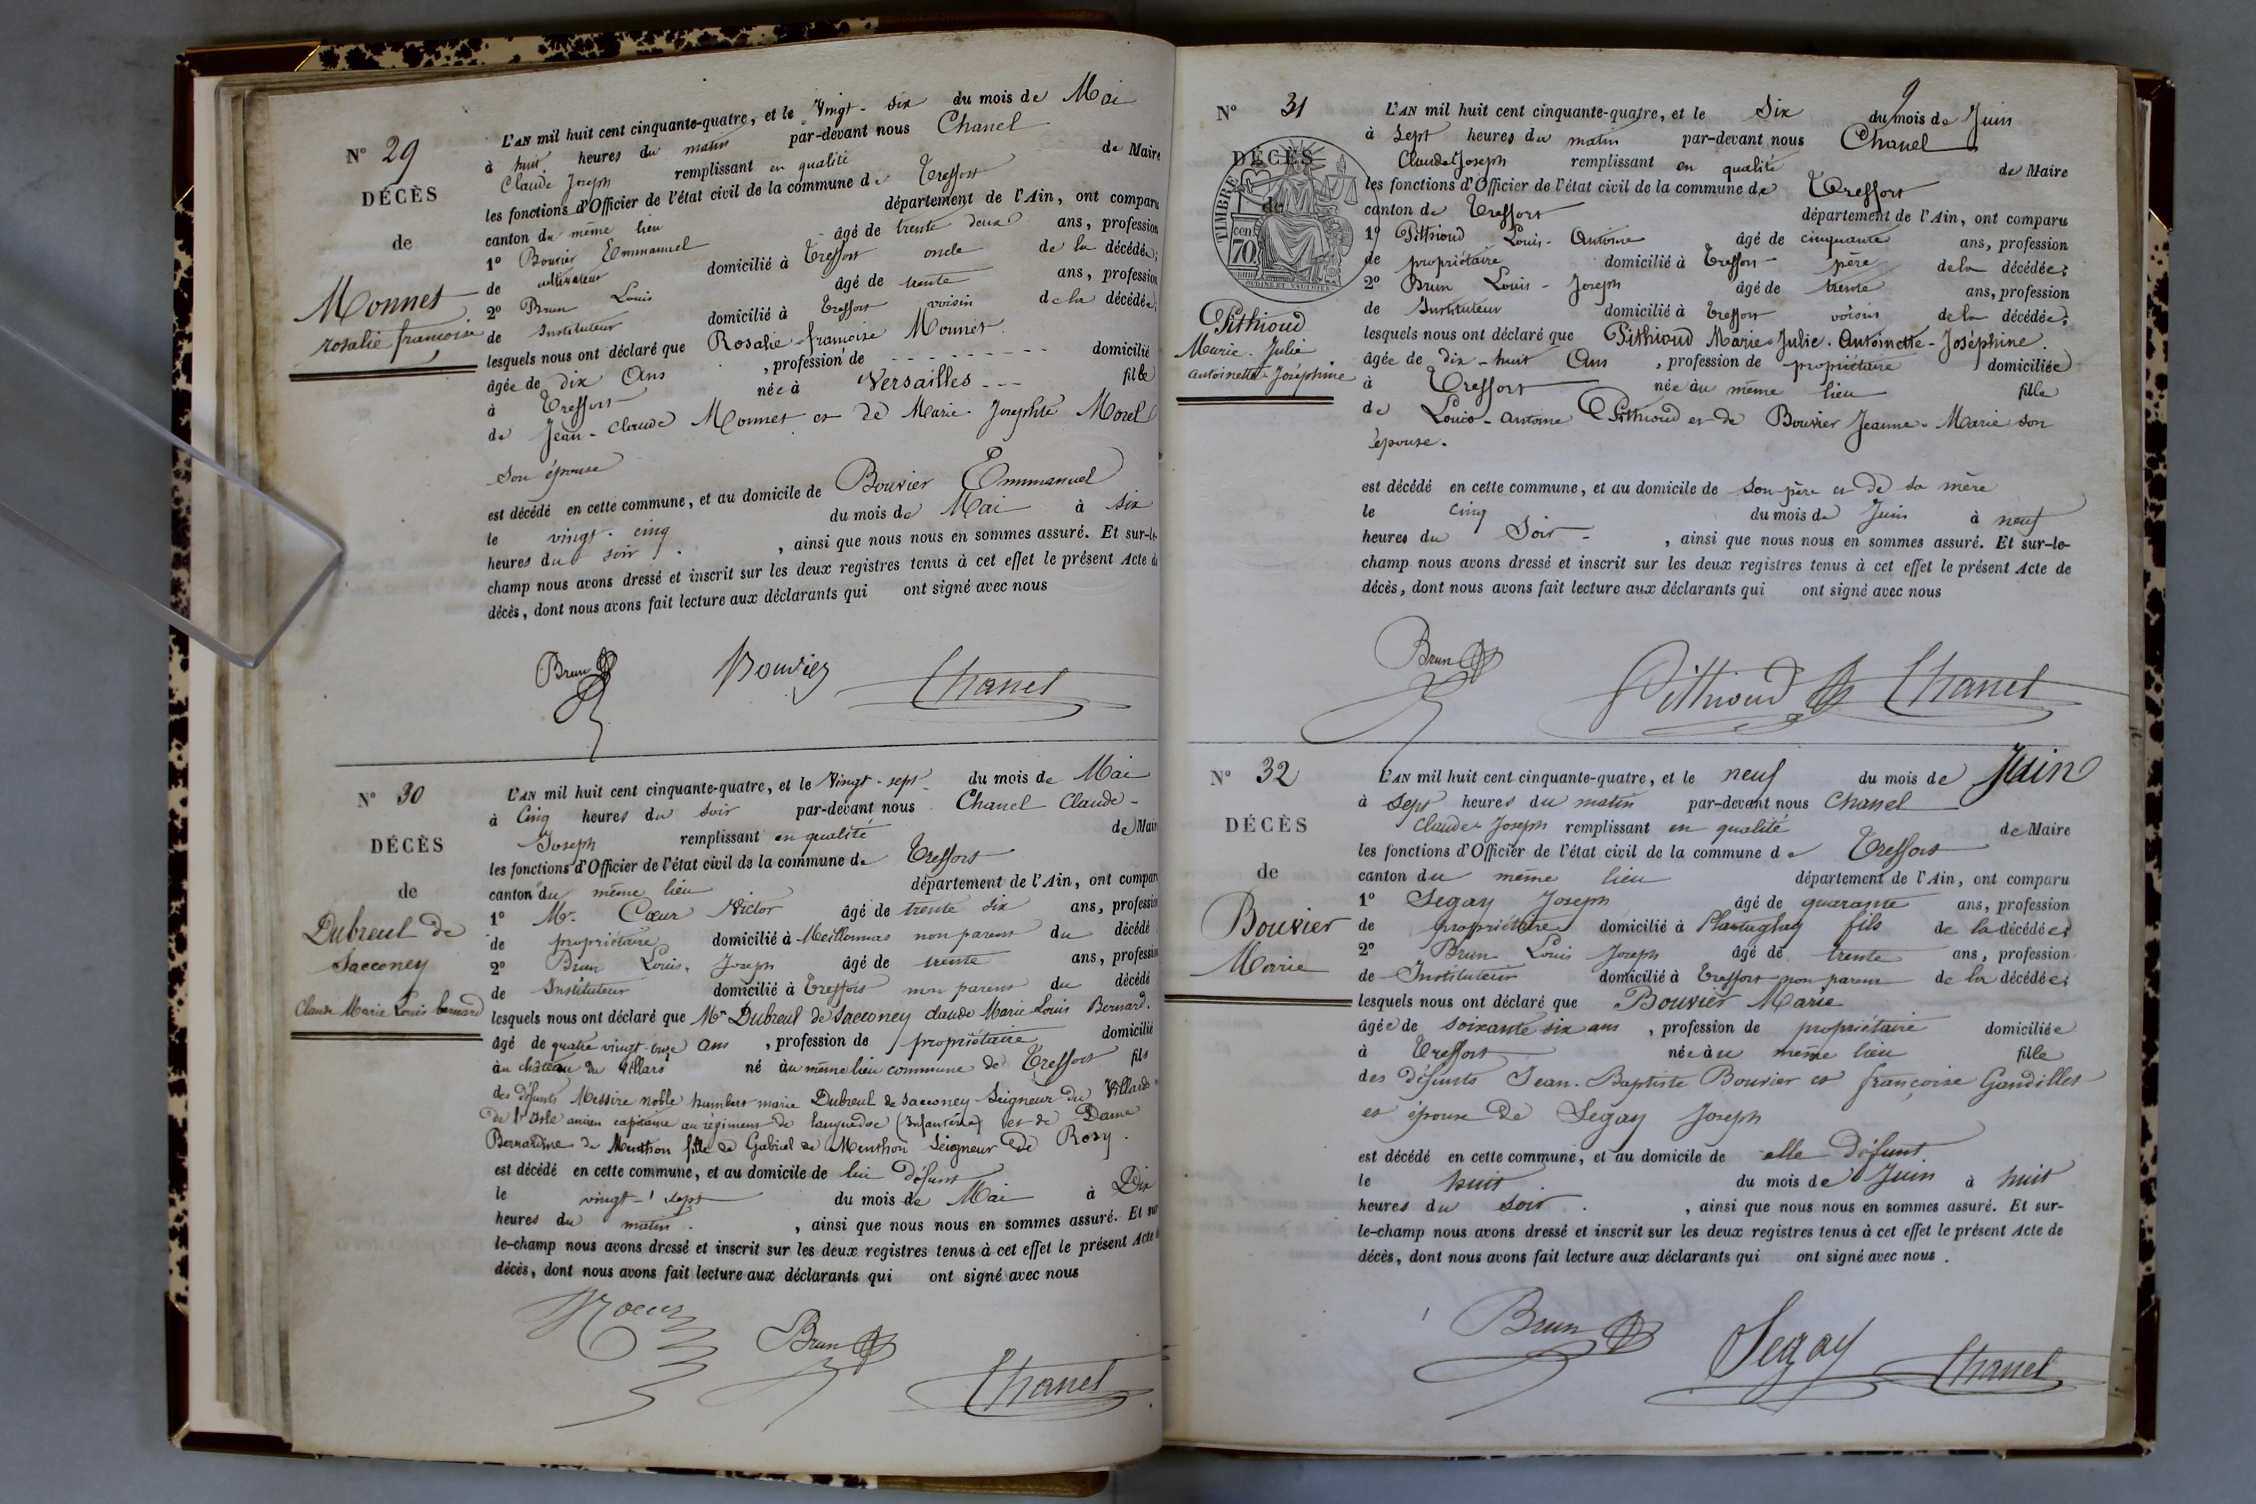 N° 29
DÉCÈS
de
Monnet
rosalie françoise
L'AN mil huit cent cinquante-quatre, et le Vingt-six du mois de Mai
à huit heures du matin par-devant nous Chanel
Claude Joseph remplissant en qualité de Maire
les fonctions d'Officier de l'état civil de la commune de Treffort
canton du même lieu département de l'Ain, ont comparu
1° Bouvier Emmanuel âgé de trente deux ans, profession
de cultivateur domicilié à Treffort oncle de la décédée;
2° Brun Louis âgé de trente ans, profession
de Instituteur domicilié à Treffort voisin de la décédée;
lesquels nous ont déclaré que Rosalie françoise Monnet
âgée de dix Ans, profession de - - - - - - - - - domicilié
à Treffort née à Versailles - - - fille
de Jean-Claude Monnet et de Marie-Josephte Morel
son épouse
est décédé en cette commune, et au domicile de Bouvier Emmanuel
le vingt-cinq du mois de Mai à six
heures du soir, ainsi que nous nous en sommes assuré. Et sur-le-
champ nous avons dressé et inscrit sur les deux registres tenus à cet effet le présent Acte de
décès, dont nous avons fait lecture aux déclarants qui ont signé avec nous
Brun Bouvier Chanel
N° 30
DÉCÈS
de
Dubreul de
Sacconey
Claude Marie Louis bernard
L'AN mil huit cent cinquante-quatre, et le Vingt-sept du mois de Mai
à Cinq heures du soir par-devant nous Chanel Claude-
Joseph remplissant en qualité de Maire
les fonctions d'Officier de l'état civil de la commune de Treffort
canton du même lieu département de l'Ain, ont comparu
1° Mr. Cœur Victor âgé de trente six ans, profession
de propriétaire domicilié à Meillonnas non parent du décédé
2° Brun Louis-Joseph âgé de trente ans, profession
de Instituteur domicilié à Treffort non parent du décédé
lesquels nous ont déclaré que Mr Dubreul de Sacconey claude Marie Louis Bernard.
âgé de quatre vingt-onze Ans, profession de propriétaire domicilié
au château du Villars né au même lieu commune de Treffort fils
des défunts Messire noble humbert marie Dubreul de Sacconey Seigneur du Villards
de l'Isle ancien capitaine au régiment de languedoc (Infanterie) et de Dame
Bernardine de Menthon fille de Gabriel de Menthon Seigneur de Rosy.
est décédé en cette commune, et au domicile de lui défunt
le vingt-sept du mois de Mai à Dix
heures du matin, ainsi que nous nous en sommes assuré. Et sur
le-champ nous avons dressé et inscrit sur les deux registres tenus à cet effet le présent Acte de
décès, dont nous avons fait lecture aux déclarants qui ont signé avec nous
Cœur Brun Chanel
9
N° 31
DÉCÈS
de
TIMBRE
cen
70
Pithioud
Marie-Julie
antoinette-Joséphine
L'AN mil huit cent cinquante-quatre, et le Six du mois de Juin
à Sept heures du matin par-devant nous Chanel
Claude Joseph remplissant en qualité de Maire
les fonctions d'Officier de l'état civil de la commune de Treffort
canton de Treffort département de l'Ain, ont comparu
1° Pithioud Louis-Antoine âgé de cinquante ans, profession
de propriétaire domicilié à Treffort père de la décédée;
2° Brun Louis-Joseph âgé de trente ans, profession
de Instituteur domicilié à Treffort voisin de la décédée;
lesquels nous ont déclaré que Pithioud Marie-Julie-Antoinette-Joséphine.
âgée de dix-huit Ans, profession de propriétaire domiciliée
à Treffort née au même lieu fille
de Louis-Antoine Pithioud et de Bouvier Jeanne-Marie son
épouse.
est décédé en cette commune, et au domicile de son père et de sa mère
le cinq du mois de Juin à neuf
heures du Soir, ainsi que nous nous en sommes assuré. Et sur-le-
champ nous avons dressé et inscrit sur les deux registres tenus à cet effet le présent Acte de
décès, dont nous avons fait lecture aux déclarants qui ont signé avec nous
Brun Pithioud Chanel
N° 32
DÉCÈS
de
Bouvier
Marie
L'AN mil huit cent cinquante-quatre, et le neuf du mois de Juin
à Sept heures du matin par-devant nous Chanel
Claude-Joseph remplissant en qualité de Maire
les fonctions d'Officier de l'état civil de la commune de Treffort
canton du même lieu département de l'Ain, ont comparu
1° Segay Joseph âgé de quarante ans, profession
de propriétaire domicilié à fils de la décédée;
2° Brun Louis Joseph âgé de trente ans, profession
de Instituteur domicilié à Treffort non parent de la décédée;
lesquels nous ont déclaré que Bouvier Marie
âgée de soixante six ans, profession de propriétaire domiciliée
à Treffort née au même lieu fille
des défunts Jean-Baptiste Bouvier et françoise Gandillet
et épouse de Segay Joseph
est décédé en cette commune, et au domicile de elle défunt
le huit du mois de Juin à huit
heures du soir, ainsi que nous nous en sommes assuré. Et sur-
le-champ nous avons dressé et inscrit sur les deux registres tenus à cet effet le présent Acte de
décès, dont nous avons fait lecture aux déclarants qui ont signé avec nous.
Brun Segay Chanel